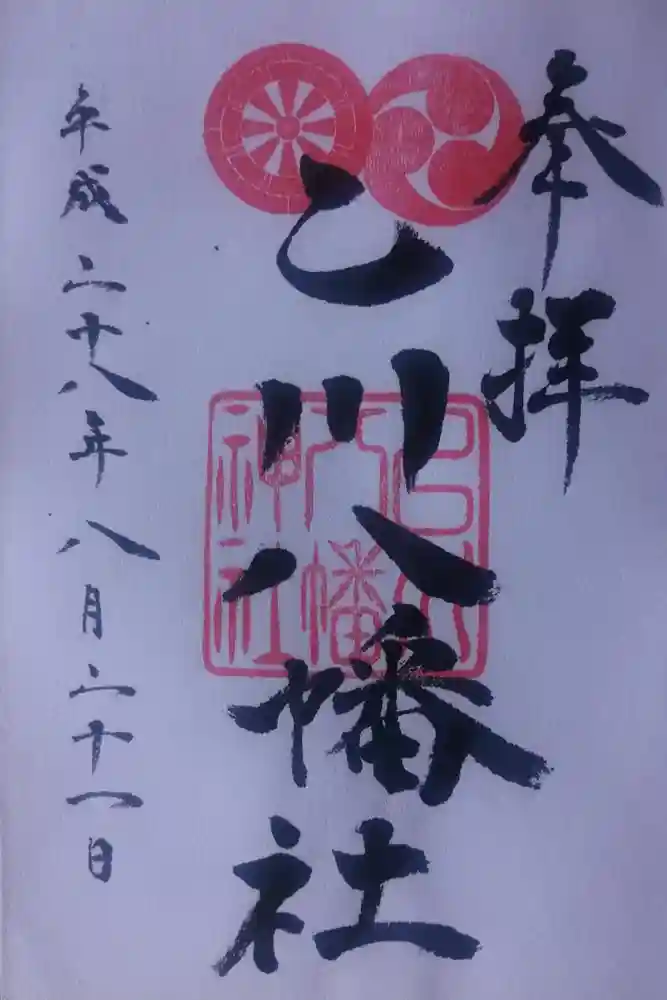 奉拝
乙川八幡社
乙川
八幡
神社
平成二十八年八月二十一日